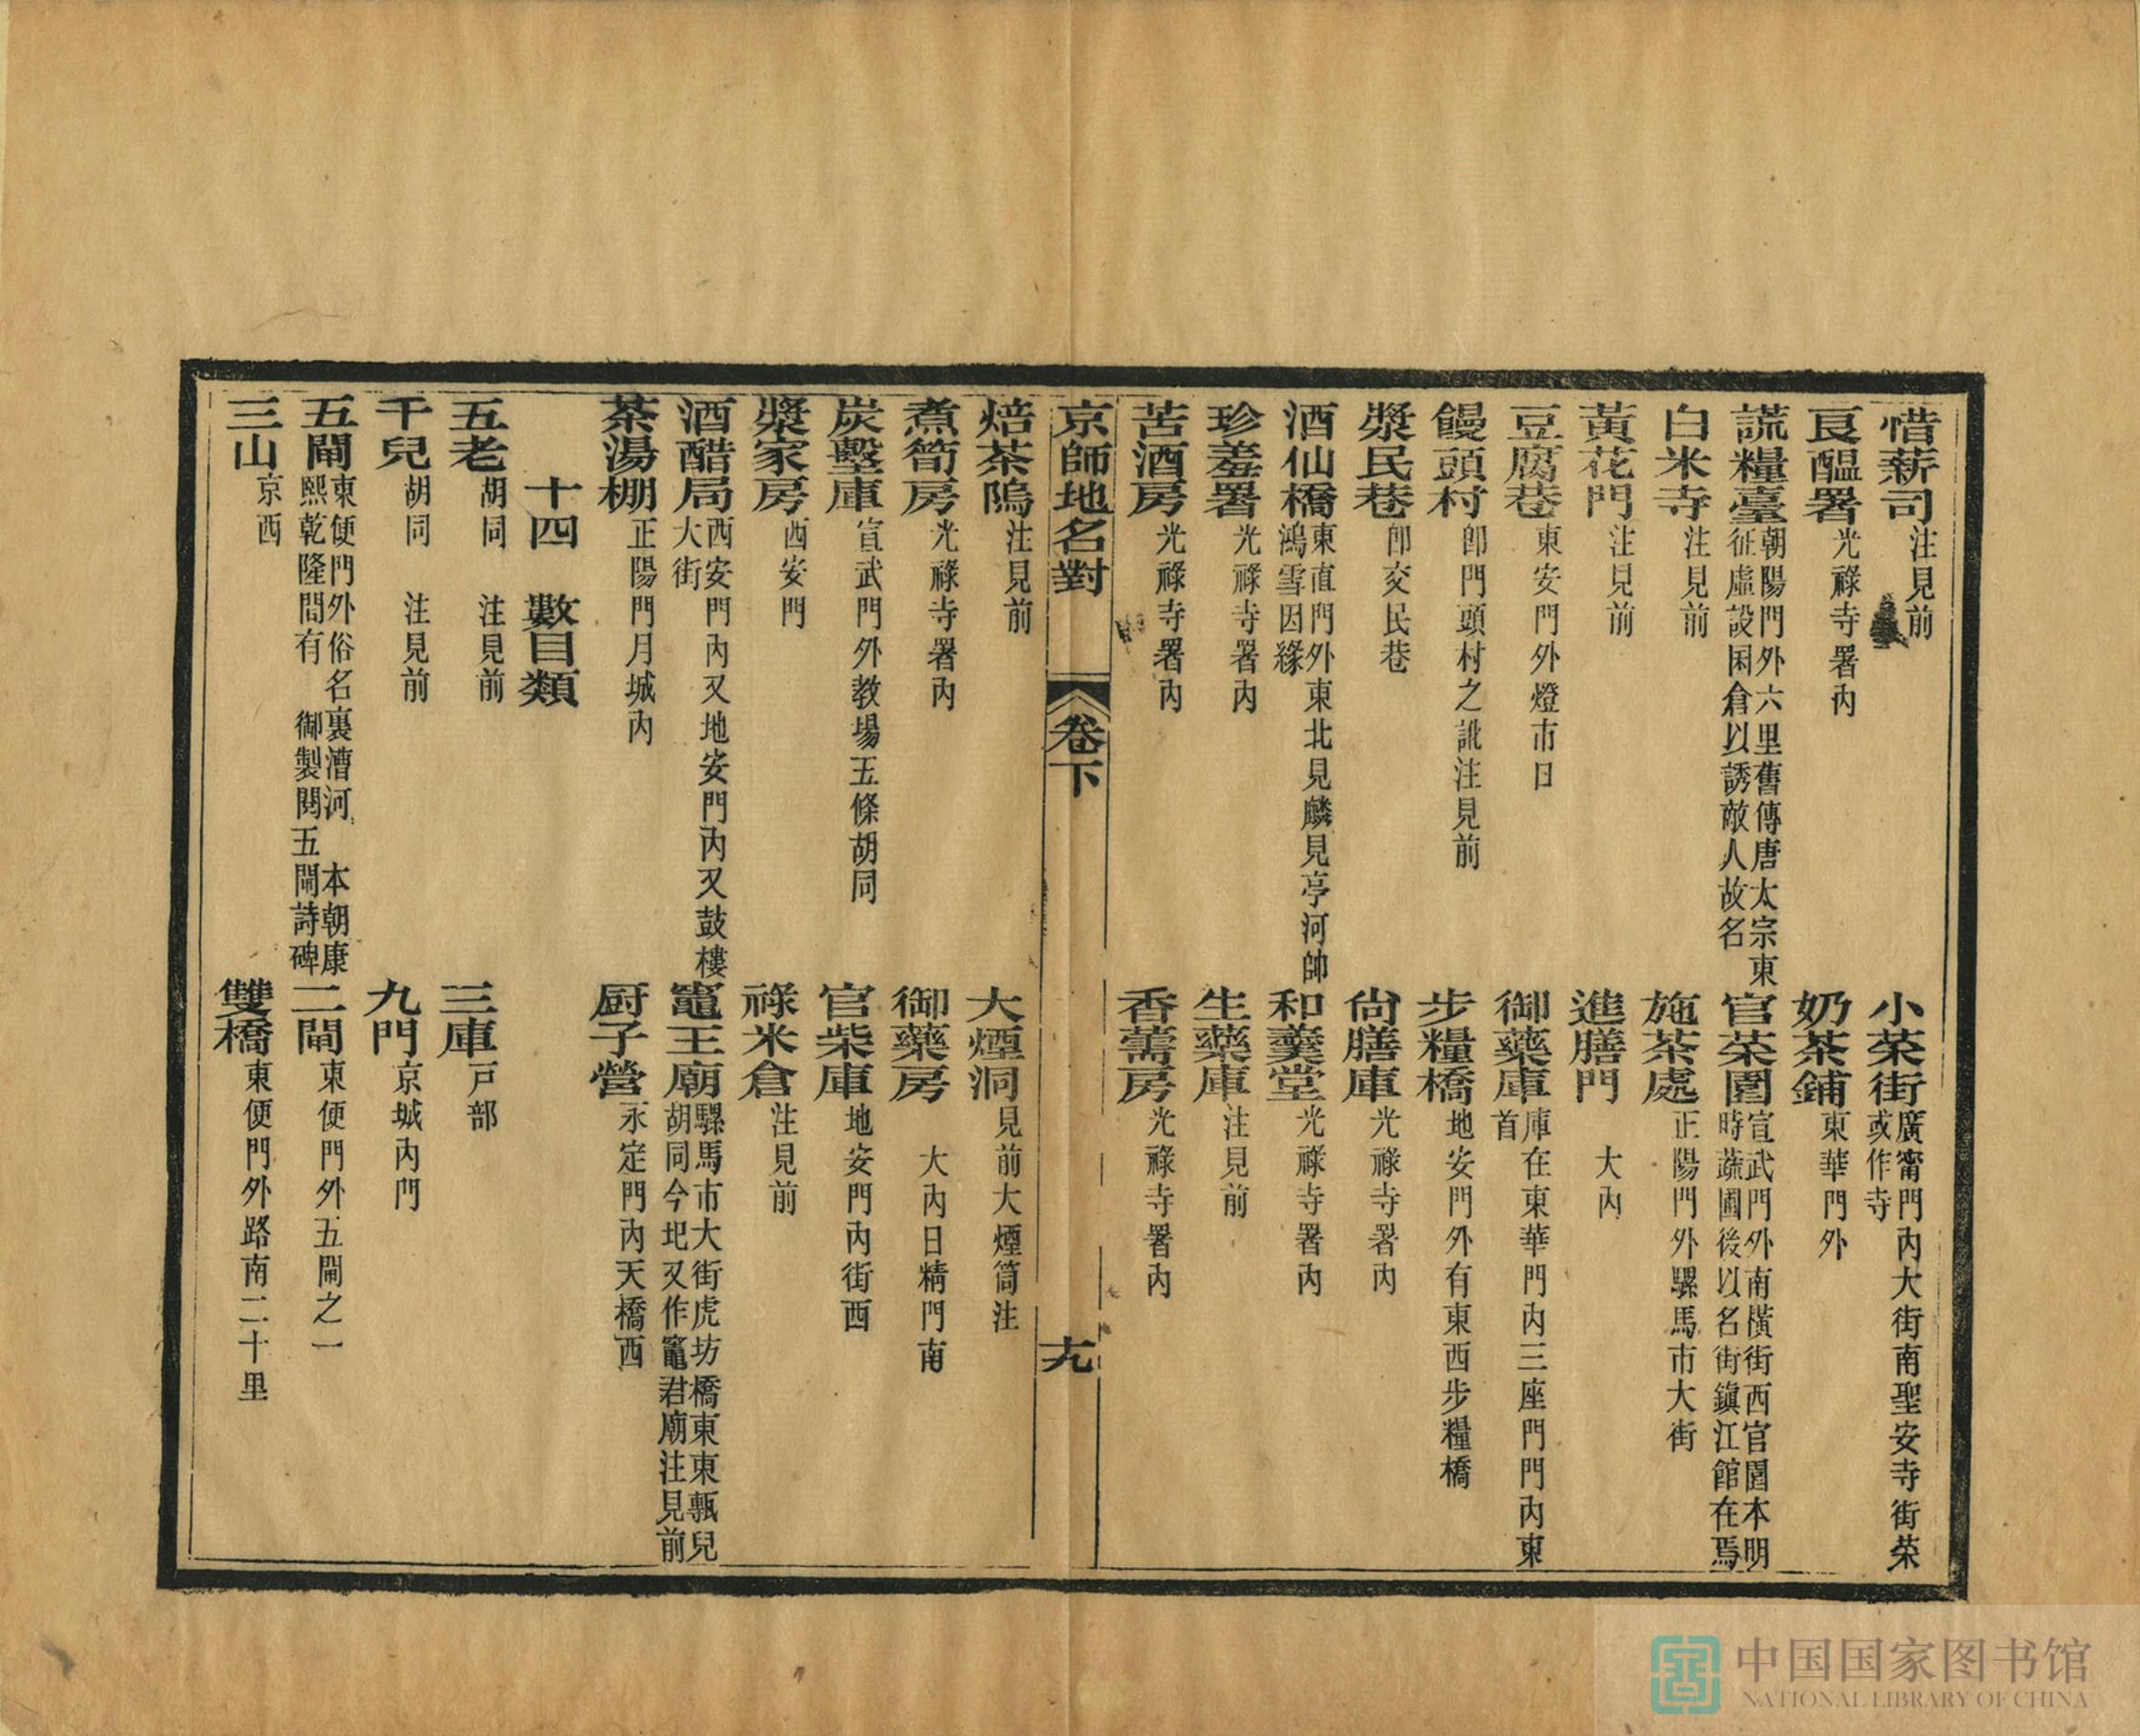 惜薪司 注見前 小菜街 廣甯門內大街南聖安寺街菜或作寺
良醞署 光祿寺署內 奶茶鋪 東華門外
謊糧臺 朝陽門外六里舊傳唐太宗東征虛設囷倉以誘敵人故名 官菜園 宣武門外南橫街西官園本明時蔬圃後以名街鎮江館在焉
白米寺 注見前 施茶處 正陽門外騾馬市大街
黃花門 注見前 進膳門 大內
豆腐巷 東安門外燈市口 御藥庫 庫在東華門內三座門門內東首
饅頭村 卽門頭村之訛注見前 步糧橋 地安門外有東西步糧橋
漿民巷 卽交民巷 尙膳庫 光祿寺署內
酒仙橋 東直門外東北見麟見亭河帥鴻雪因緣 和羹堂 光祿寺署內
珍羞署 光祿寺署內 生藥庫 注見前
苦酒房 光祿寺署內 香薷房 光祿寺署內
京師地名對 卷下 十九
焙茶塢 注見前 大煙洞 見前大煙筒注
煮筍房 光祿寺署內 御藥房 大內日精門南
炭墼庫 宣武門外教場五條胡同 官柴庫 地安門內街西
漿家房 西安門 祿米倉 注見前
酒醋局 西安門內又地安門內又鼓樓大街 竈王廟 騾馬市大街虎坊橋東東甎兒胡同今圯又作竈君廟注見前
茶湯棚 正陽門月城內 厨子營 永定門內天橋西
十四 數目類
五老 胡同 注見前 三庫 戸部
千兒 胡同 注見前 九門 京城內門
五閘 東便門外俗名裏漕河 本朝康熙乾隆間有 御製閱五閘詩碑 二閘 東便門外五閘之一
三山 京西 雙橋 東便門外路南二十里
中国国家图书馆
NATIONAL LIBRARY OF CHINA